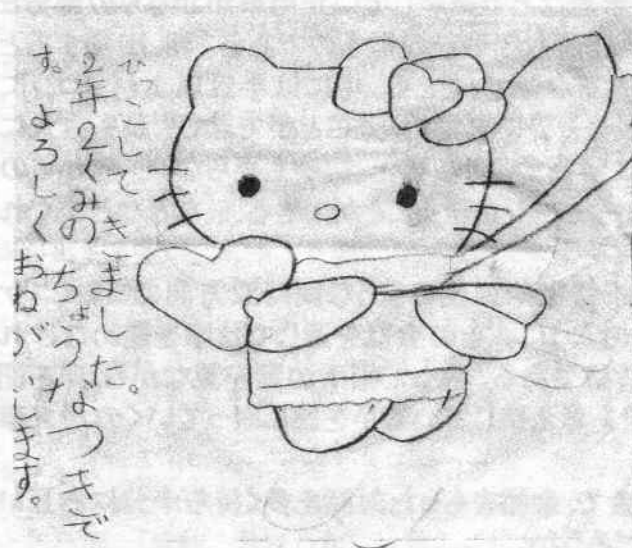 ひっこしてきました。
2年2くみの ちょうなつきで
す。よろしく おねがいします。